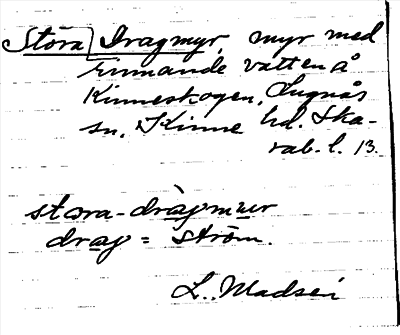 Stora Dragmyr, myr med
rinnande vatten å
Kinneskogen, Lugnås
sn, Kinne hd. Ska-
rab. l. 13.
stora-dràgmuer
drag = ström.
L. Madsen